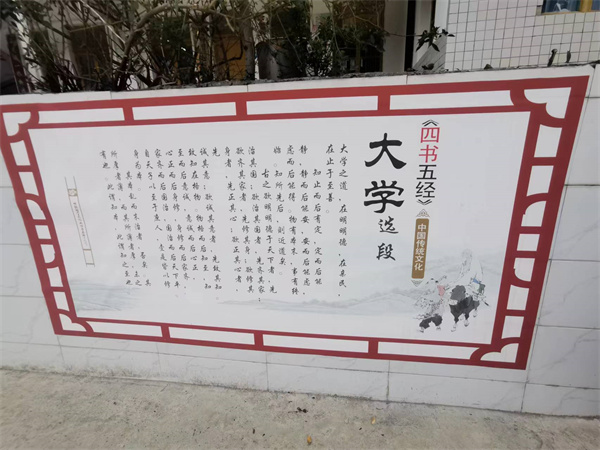 《四书五经》
中国传统文化
大学选段
大学之道，在明明德，在亲民，
在止于至善。
知止而后有定，定而后能
静，静而后能安，安而后能虑，
虑而后能得。物有本末，事有终
始。知所先后，则近道矣。
古之欲明明德于天下者，先
治其国；欲治其国者，先齐其家；
欲齐其家者，先修其身；欲修其
身者，先正其心；欲正其心者，
先
诚其意；欲诚其意者，先致其知
致知在格物。物格而后知至，知
至而后意诚，意诚而后心正，
心正而后身修，身修而后
家齐而后国治，国治而后天下平
自天子以至于
身为本。其本乱而末治者，否矣。其
所厚者薄，而其所薄者厚，未之
有也。此谓知本，此谓知之至也